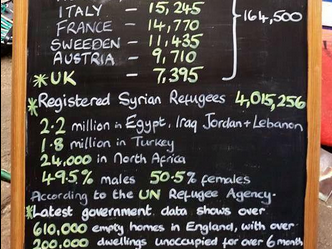 ITALY – 15,245
FRANCE – 14,770
164,500
SWEEDEN – 11,435
AUSTRIA – 9,710
*UK – 7,395
*Registered Syrian Refugees 4,015,256
2.2 million in Egypt, Iraq Jordan + Lebanon
1.8 million in Turkey
24,000 in North Africa
49.5% males 50.5% females
According to the UN Refugee Agency.
*Latest government data shows over
610,000 empty homes in England, with over
200,000 dwellings unoccupied for over 6 month